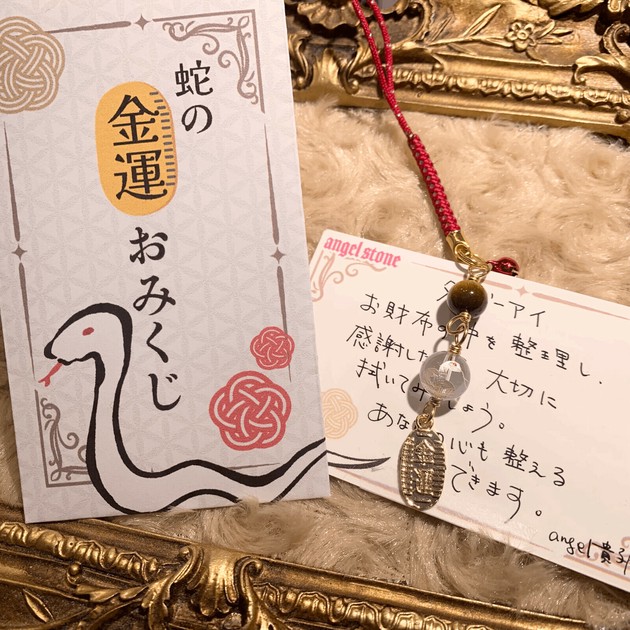 蛇の
金運
おみくじ
angel stone
ーアイ
お財布の中を整理し、
感謝した 大切に
拭いてみしょう。
あな 心も整える
できます。
angel 貴
金運